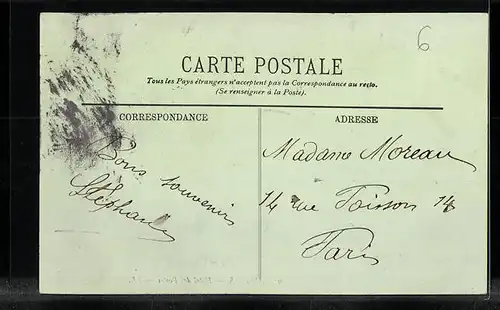 6
CARTE POSTALE
Tous les Pays étrangers n'acceptent pas la Correspondance au recto.
(Se renseigner à la Poste).
CORRESPONDANCE
Bons souvenirs
Stéphanie
ADRESSE
Madame Moreau
14 rue Poisson 14
Paris